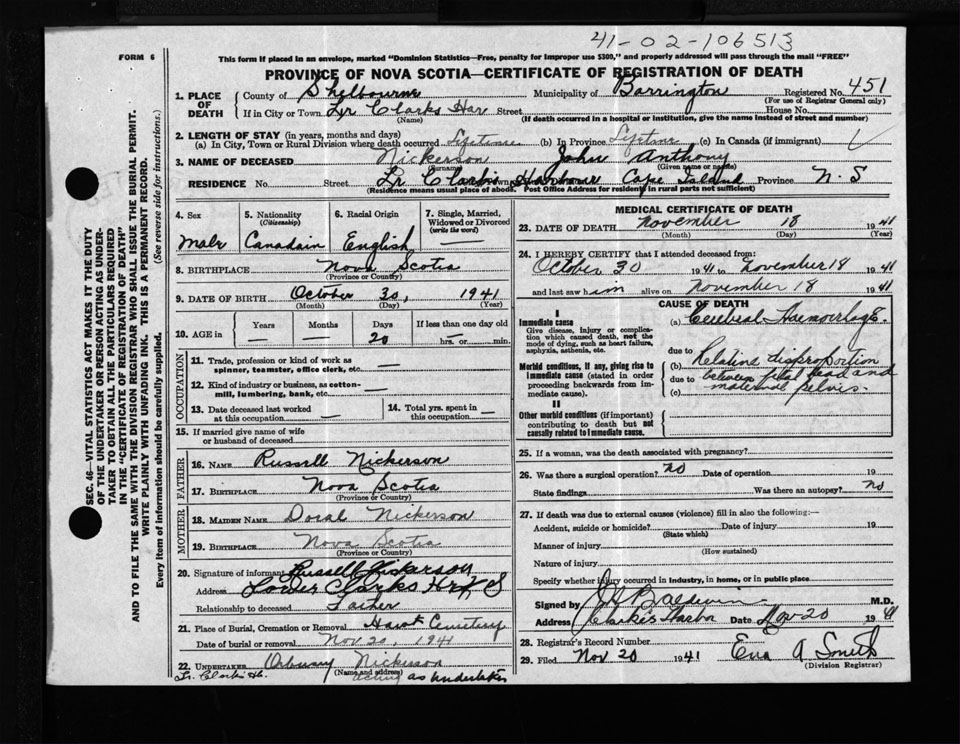 41-02-106513
FORM 6
This form if placed in an envelope, marked "Dominion Statistics—Free, penalty for improper use $300," and properly addressed will pass through the mail "FREE"
PROVINCE OF NOVA SCOTIA—CERTIFICATE OF REGISTRATION OF DEATH
SEC. 46—VITAL STATISTICS ACT MAKES IT THE DUTY
OF THE UNDERTAKER OR PERSON ACTING AS UNDER-
TAKER TO OBTAIN ALL THE PARTICULARS REQUIRED
IN THE "CERTIFICATE OF REGISTRATION OF DEATH"
AND TO FILE THE SAME WITH THE DIVISION REGISTRAR WHO SHALL ISSUE THE BURIAL PERMIT.
WRITE PLAINLY WITH UNFADING INK. THIS IS A PERMANENT RECORD.
Every item of information should be carefully supplied. (See reverse side for instructions.)
1. PLACE OF DEATH
County of Shelbourne Municipality of Barrington Registered No. 451
(For use of Registrar General only)
If in City or Town Lr Clarks Har Street House No.
(Name) (If death occurred in a hospital or institution, give the name instead of street and number)
2. LENGTH OF STAY (in years, months and days)
(a) In City, Town or Rural Division where death occurred Lifetime (b) In Province Lifetime (c) In Canada (if immigrant)
3. NAME OF DECEASED Nickerson John Anthony
(Surname) (Given name or names)
RESIDENCE No. Street Lr Clarks Harbour Cape Island Province N.S
(Residence means usual place of abode. Post Office Address for residents in rural parts not sufficient)
4. Sex
Male
5. Nationality (Citizenship)
Canadain
6. Racial Origin
English
7. Single, Married, Widowed or Divorced (write the word)
—
8. BIRTHPLACE Nova Scotia
(Province or Country)
9. DATE OF BIRTH October 30, 1941
(Month) (Day) (Year)
10. AGE in
Years Months Days If less than one day old
20 hrs. or min.
OCCUPATION
11. Trade, profession or kind of work as spinner, teamster, office clerk, etc. —
12. Kind of industry or business, as cotton-mill, lumbering, bank, etc. —
13. Date deceased last worked at this occupation —
14. Total yrs. spent in this occupation —
15. If married give name of wife or husband of deceased
FATHER
16. NAME Russell Nickerson
17. BIRTHPLACE Nova Scotia
(Province or Country)
MOTHER
18. MAIDEN NAME Doral Nickerson
19. BIRTHPLACE Nova Scotia
(Province or Country)
20. Signature of informant Russell Nickerson
Address Lower Clarks Hr N S
Relationship to deceased Father
21. Place of Burial, Cremation or Removal Hawk Cemetery
Date of burial or removal Nov 20 1941
22. UNDERTAKER Nickerson
(Name and address)
Lr. Clarks Hr. acting as undertaker
MEDICAL CERTIFICATE OF DEATH
23. DATE OF DEATH November 18 1941
(Month) (Day) (Year)
24. I HEREBY CERTIFY that I attended deceased from:
October 30 1941 to November 18 1941
and last saw him alive on November 18 1941
CAUSE OF DEATH
I
Immediate cause
Give disease, injury or complication which caused death, not the mode of dying, such as heart failure, asphyxia, asthenia, etc.
(a) Cerebral Haemorrhage.
due to
Morbid conditions, if any, giving rise to immediate cause (stated in order proceeding backwards from immediate cause).
(b) Relative disproportion
due to between fetal head and
(c) maternal pelvis.
II
Other morbid conditions (if important) contributing to death but not causally related to immediate cause.
25. If a woman, was the death associated with pregnancy?
26. Was there a surgical operation? no Date of operation 19
State findings Was there an autopsy? no
27. If death was due to external causes (violence) fill in also the following:—
Accident, suicide or homicide? Date of injury 19
(State which)
Manner of injury
(How sustained)
Nature of injury
Specify whether injury occurred in industry, in home, or in public place
Signed by Baldwin M.D.
Address Clarks Harbor Date Nov 20 1941
28. Registrar's Record Number
29. Filed Nov 20 1941 Eva A Smith
(Division Registrar)